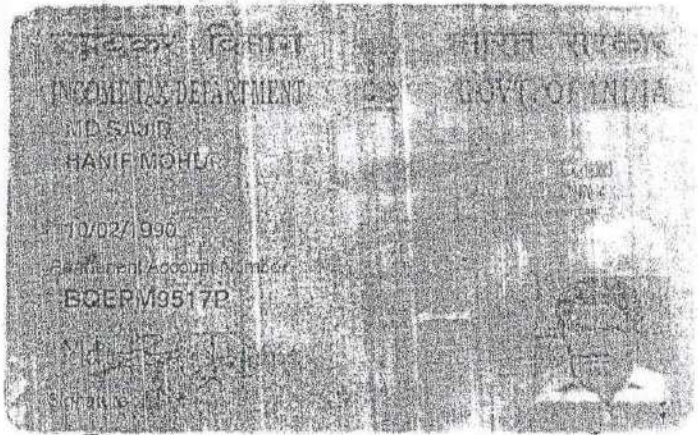 आयकर विभाग भारत सरकार
INCOME TAX DEPARTMENT GOVT. OF INDIA
MD SAJID
HANIF
10/02/1990
Permanent Account Number
BQEPM9517P
Signature